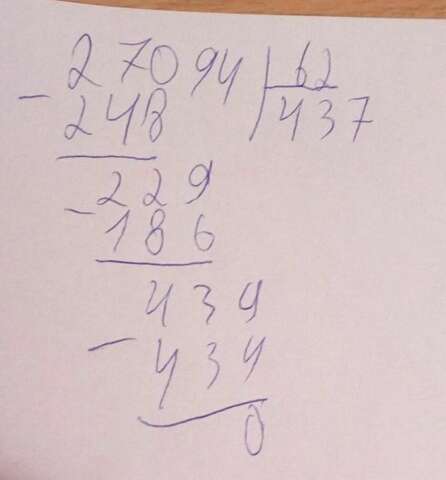 27094 62
- 248 437
- 229
186
439
- 434
0